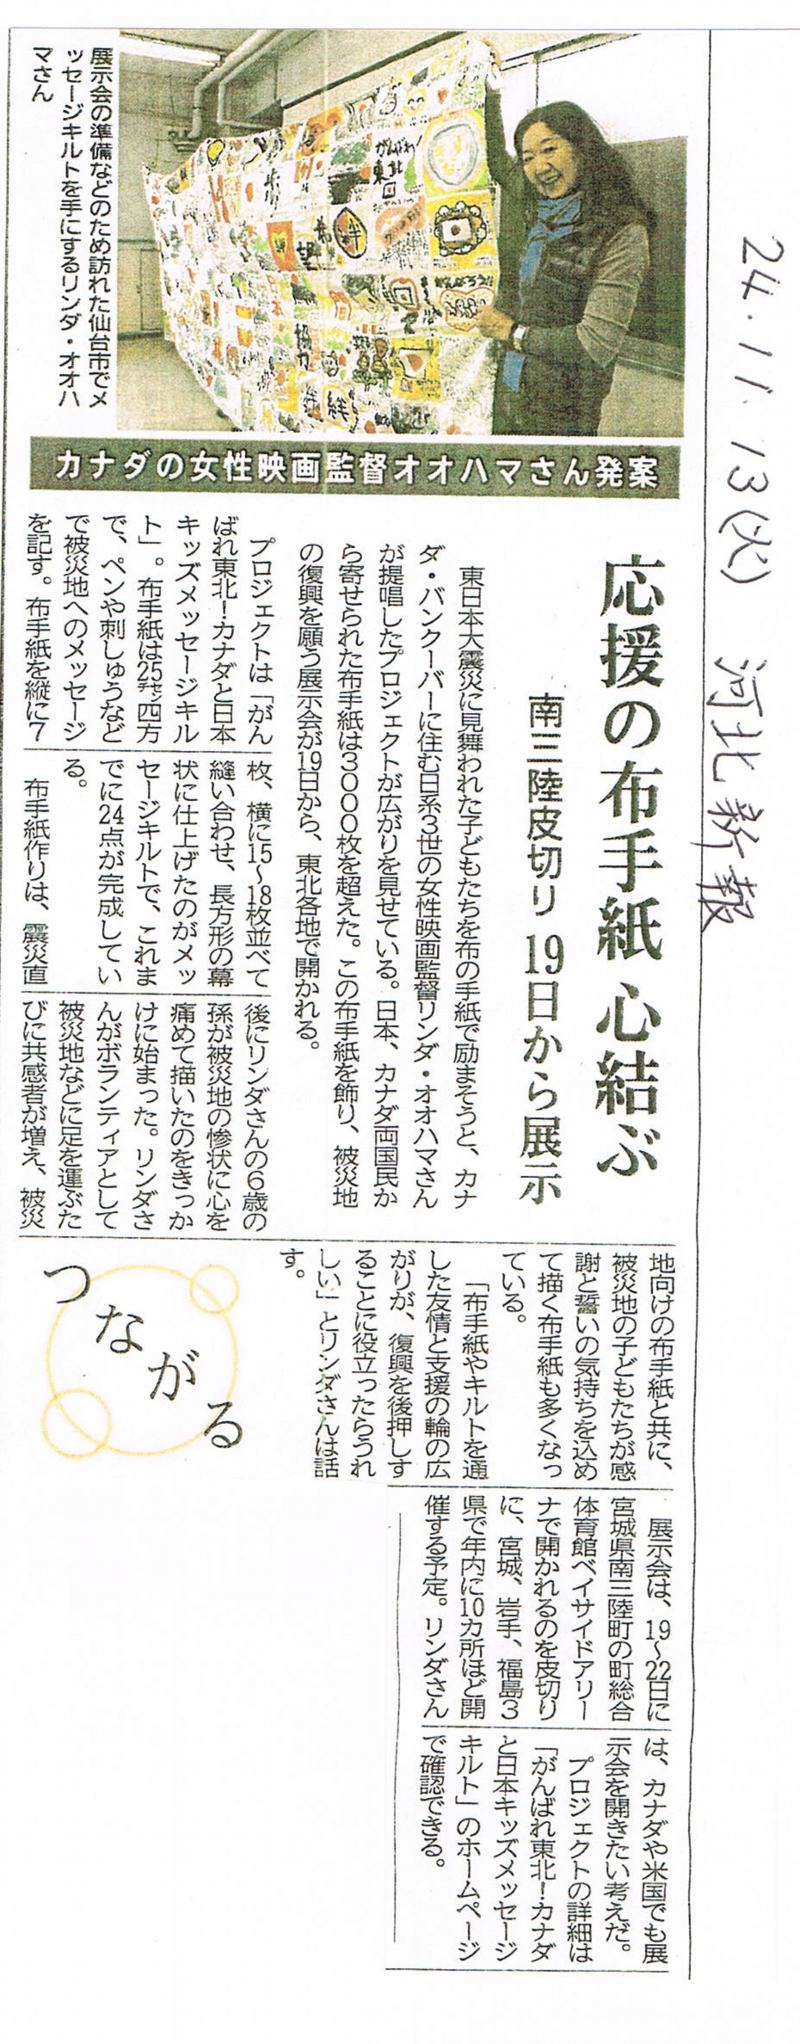 24.11.13(火) 河北新報
応援の布手紙 心結ぶ
南三陸皮切り 19日から展示
カナダの女性映画監督オオハマさん発案
展示会の準備などのため訪れた仙台市でメ
ッセージキルトを手にするリンダ・オオハ
マさん
がんばれ!
東北
希望
絆
協力
絆
東日本大震災に見舞われた子どもたちを布の手紙で励まそうと、カナ
ダ・バンクーバーに住む日系3世の女性映画監督リンダ・オオハマさん
が提唱したプロジェクトが広がりを見せている。日本、カナダ両国民か
ら寄せられた布手紙は3000枚を超えた。この布手紙を飾り、被災地
の復興を願う展示会が19日から、東北各地で開かれる。
プロジェクトは「がん
ばれ東北!カナダと日本
キッズメッセージキル
ト」。布手紙は25㌢四方
で、ペンや刺しゅうなど
で被災地へのメッセージ
を記す。布手紙を縦に7
枚、横に15〜18枚並べて
縫い合わせ、長方形の幕
状に仕上げたのがメッ
セージキルトで、これま
でに24点が完成してい
る。
布手紙作りは、震災直
後にリンダさんの6歳の
孫が被災地の惨状に心を
痛めて描いたのをきっか
けに始まった。リンダさ
んがボランティアとして
被災地などに足を運ぶた
びに共感者が増え、被災
地向けの布手紙と共に、
被災地の子どもたちが感
謝と誓いの気持ちを込め
て描く布手紙も多くなっ
ている。
「布手紙やキルトを通
した友情と支援の輪の広
がりが、復興を後押しす
ることに役立ったらうれ
しい」とリンダさんは話
す。
つながる
展示会は、19〜22日に
宮城県南三陸町の町総合
体育館ベイサイドアリー
ナで開かれるのを皮切り
に、宮城、岩手、福島3
県で年内に10カ所ほど開
催する予定。リンダさん
は、カナダや米国でも展
示会を開きたい考えだ。
プロジェクトの詳細は
「がんばれ東北!カナダ
と日本キッズメッセージ
キルト」のホームページ
で確認できる。